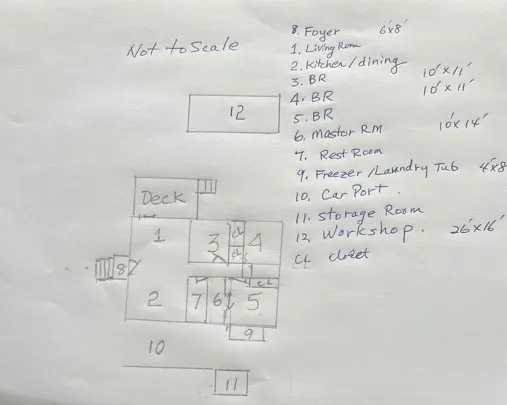 Not to Scale
8. Foyer 6'x8'
1. Living Room
2. Kitchen/dining
3. BR 10'x11'
4. BR 10'x11'
5. BR
6. Mastor RM 10'x14'
7. Rest Room
9. Freezer/Laundry Tub 4'x8
10. Car Port.
11. Storage Room
12. Workshop. 26'x16'
CL closet
12
Deck
1
3
CL
CL
4
8
2
7
6
CL
5
9
10
11